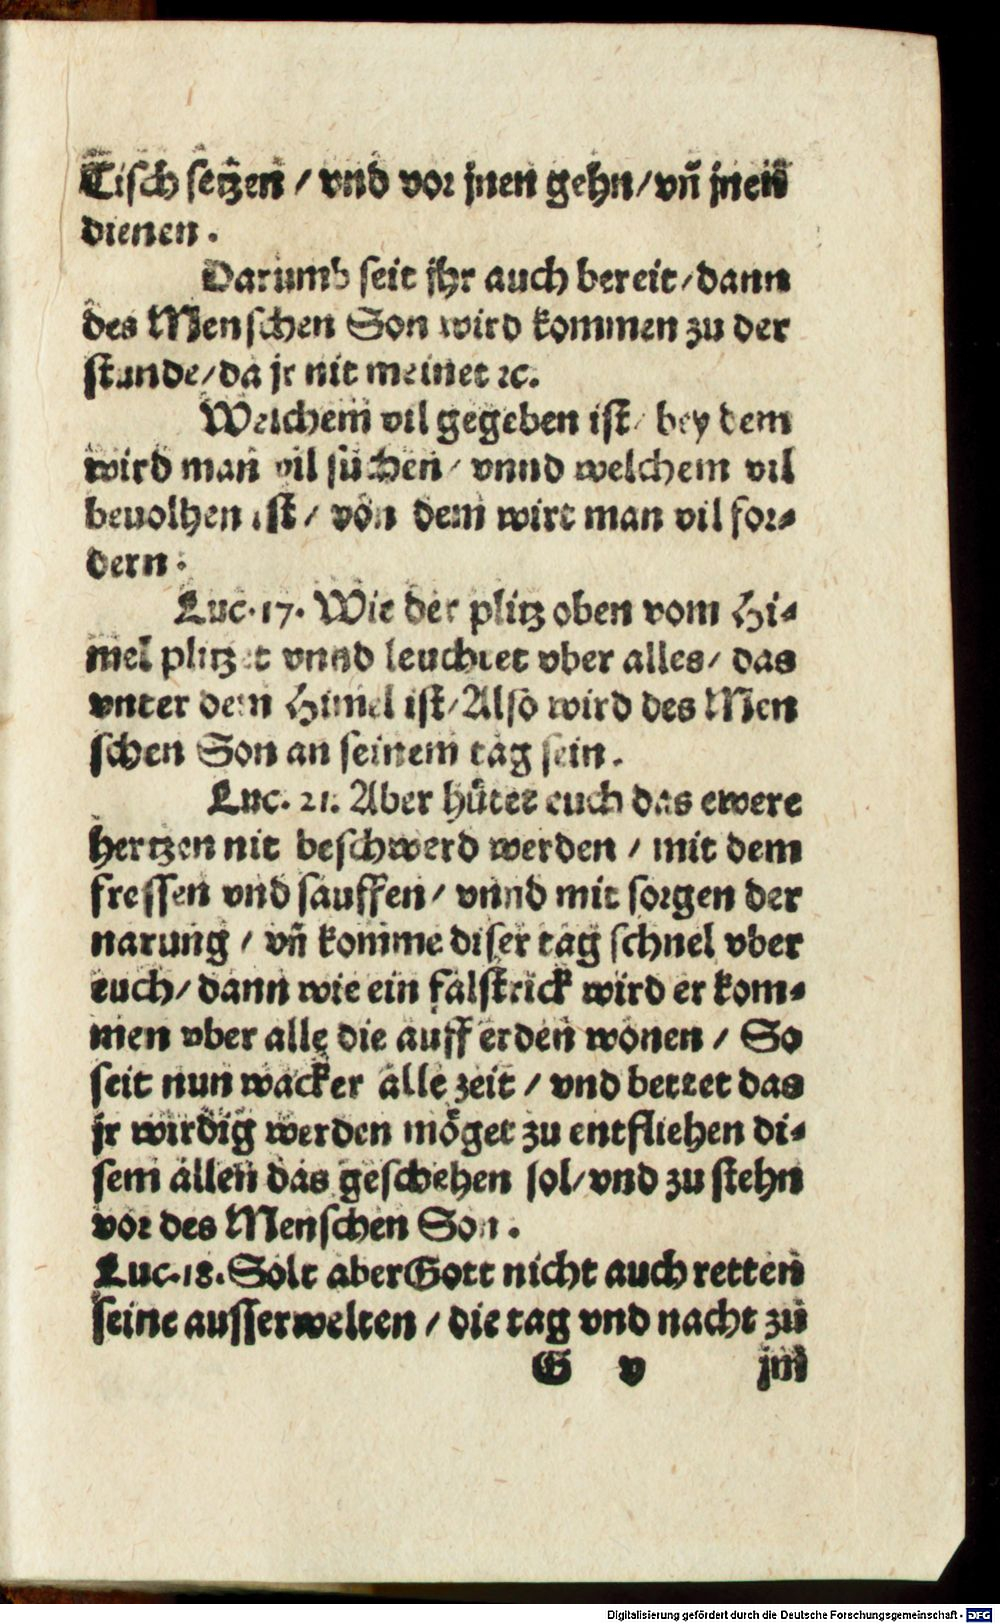 Tisch setzen / vnd vor jnen gehn / vñ jnen
dienen.
Darumb seit jhr auch bereit / dann
des Menschen Son wird kommen zu der
stunde / da jr nit meinet ꝛc.
Welchem vil gegeben ist / bey dem
wird man vil suchen / vnnd welchem vil
beuolhen ist / von dem wirt man vil for⸗
dern.
Luc. 17. Wie der plitz oben vom Hi⸗
mel plitzet vnnd leuchtet vber alles / das
vnter dem Himel ist / Also wird des Men
schen Son an seinem tag sein.
Luc. 21. Aber hütet euch das ewere
hertzen nit beschwerd werden / mit dem
fressen vnd sauffen / vnnd mit sorgen der
narung / vñ komme diser tag schnel vber
euch / dann wie ein falstrick wird er kom⸗
men vber alle die auff erden wonen / So
seit nun wacker alle zeit / vnd bettet das
jr wirdig werden möget zu entfliehen di⸗
sem allen das geschehen sol / vnd zu stehn
vor des Menschen Son.
Luc. 18. Solt aber Gott nicht auch retten
seine ausserwelten / die tag vnd nacht zu
G v jm
Digitalisierung gefördert durch die Deutsche Forschungsgemeinschaft - DFG